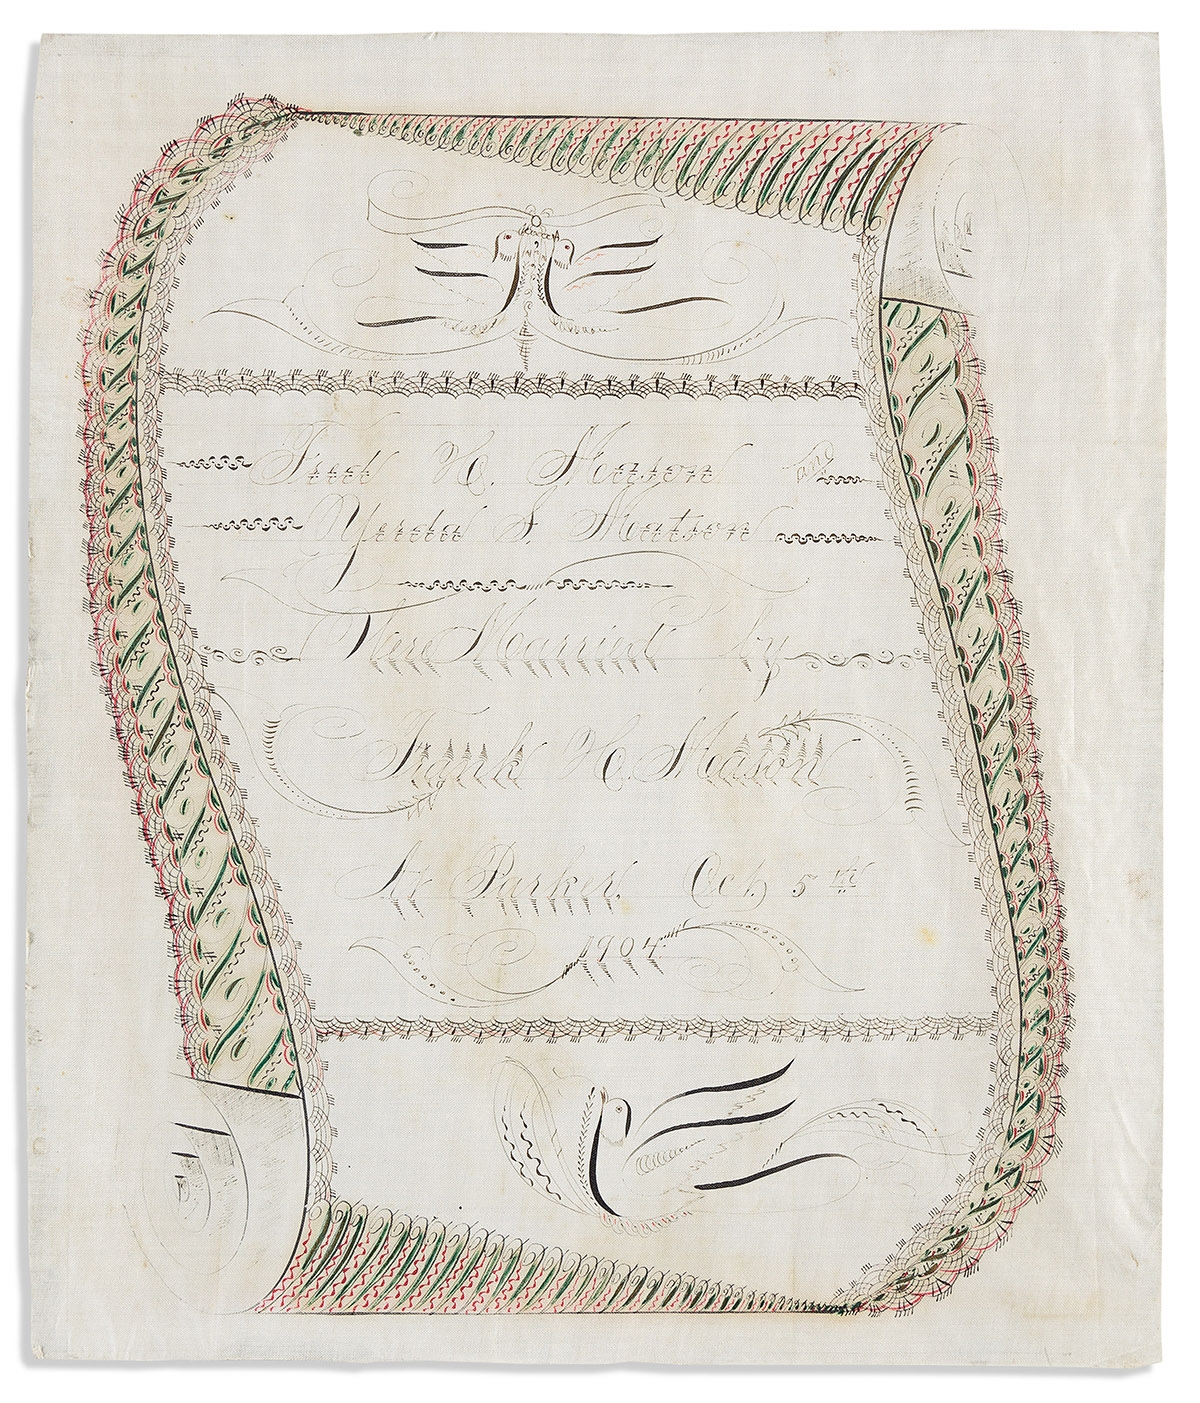 Fred H. Mason and
S. Matson
Were Married by
Frank H. Mason
At Parker, Oct. 5th
1904